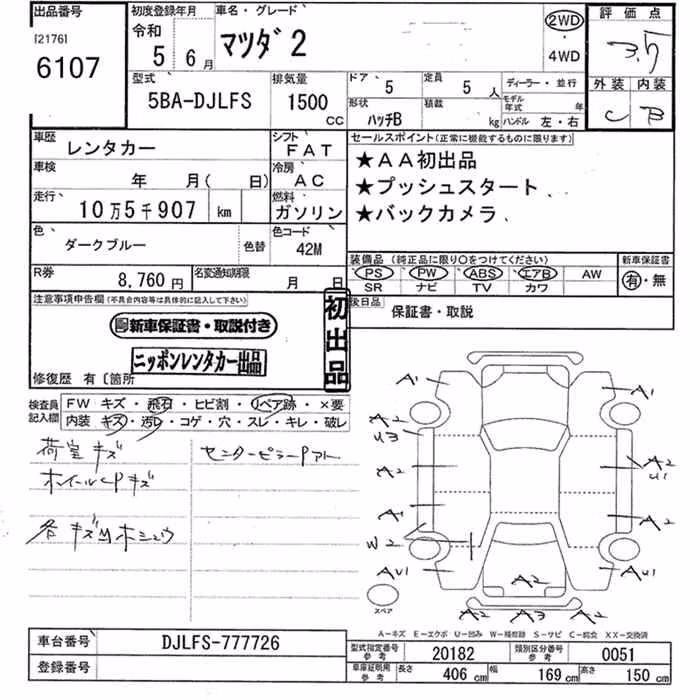 出品番号
[2176]
6107
初度登録年月
令和
5 6月
車名・グレード
マツダ2
2WD
・
4WD
評価点
3.5
外装 内装
C B
型式
5BA-DJLFS
排気量
1500
CC
ドア 5
定員 5人
ディーラー・並行
形状
ハッチB
積載
kg
モデル年式 年
ハンドル 左・右
車歴 レンタカー
シフト FAT
車検 年 月( 日)
冷房 AC
走行 10万5千907 km
燃料 ガソリン
色 ダークブルー 色替
色コード 42M
セールスポイント(正常に機能するものに限ります)
★AA初出品
★プッシュスタート
★バックカメラ
装備品(純正品に限り○をつけてください)
PS PW ABS エアB AW
SR ナビ TV カワ
新車保証書
有・無
R券 8,760円
名変通知期限 月 日
注意事項申告欄(不具合内容等は具体的に記入して下さい)
新車保証書・取説付き
ニッポンレンタカー出品
初出品
修復歴 有〔箇所
後日品
保証書・取説
検査員記入欄
FW キズ・飛石・ヒビ割・リペア跡・×要
内装 キズ・汚レ・コゲ・穴・スレ・キレ・破レ
荷室キズ
センターピラーPアト
ホイールCPキズ
各キズ凹ホシュウ
A1 A1
A2
U3
A2 A2
U1
A1 A2
W2
AU1 AU1
A2
A2 A3 A2
スペア
A-キズ E-エクボ U-凹み W-補修跡 S-サビ C-腐食 XX-交換済
車台番号 DJLFS-777726
登録番号
型式指定番号 参考 20182
類別区分番号 参考 0051
車庫証明用 参考 長さ 406 cm 幅 169 cm 高さ 150 cm